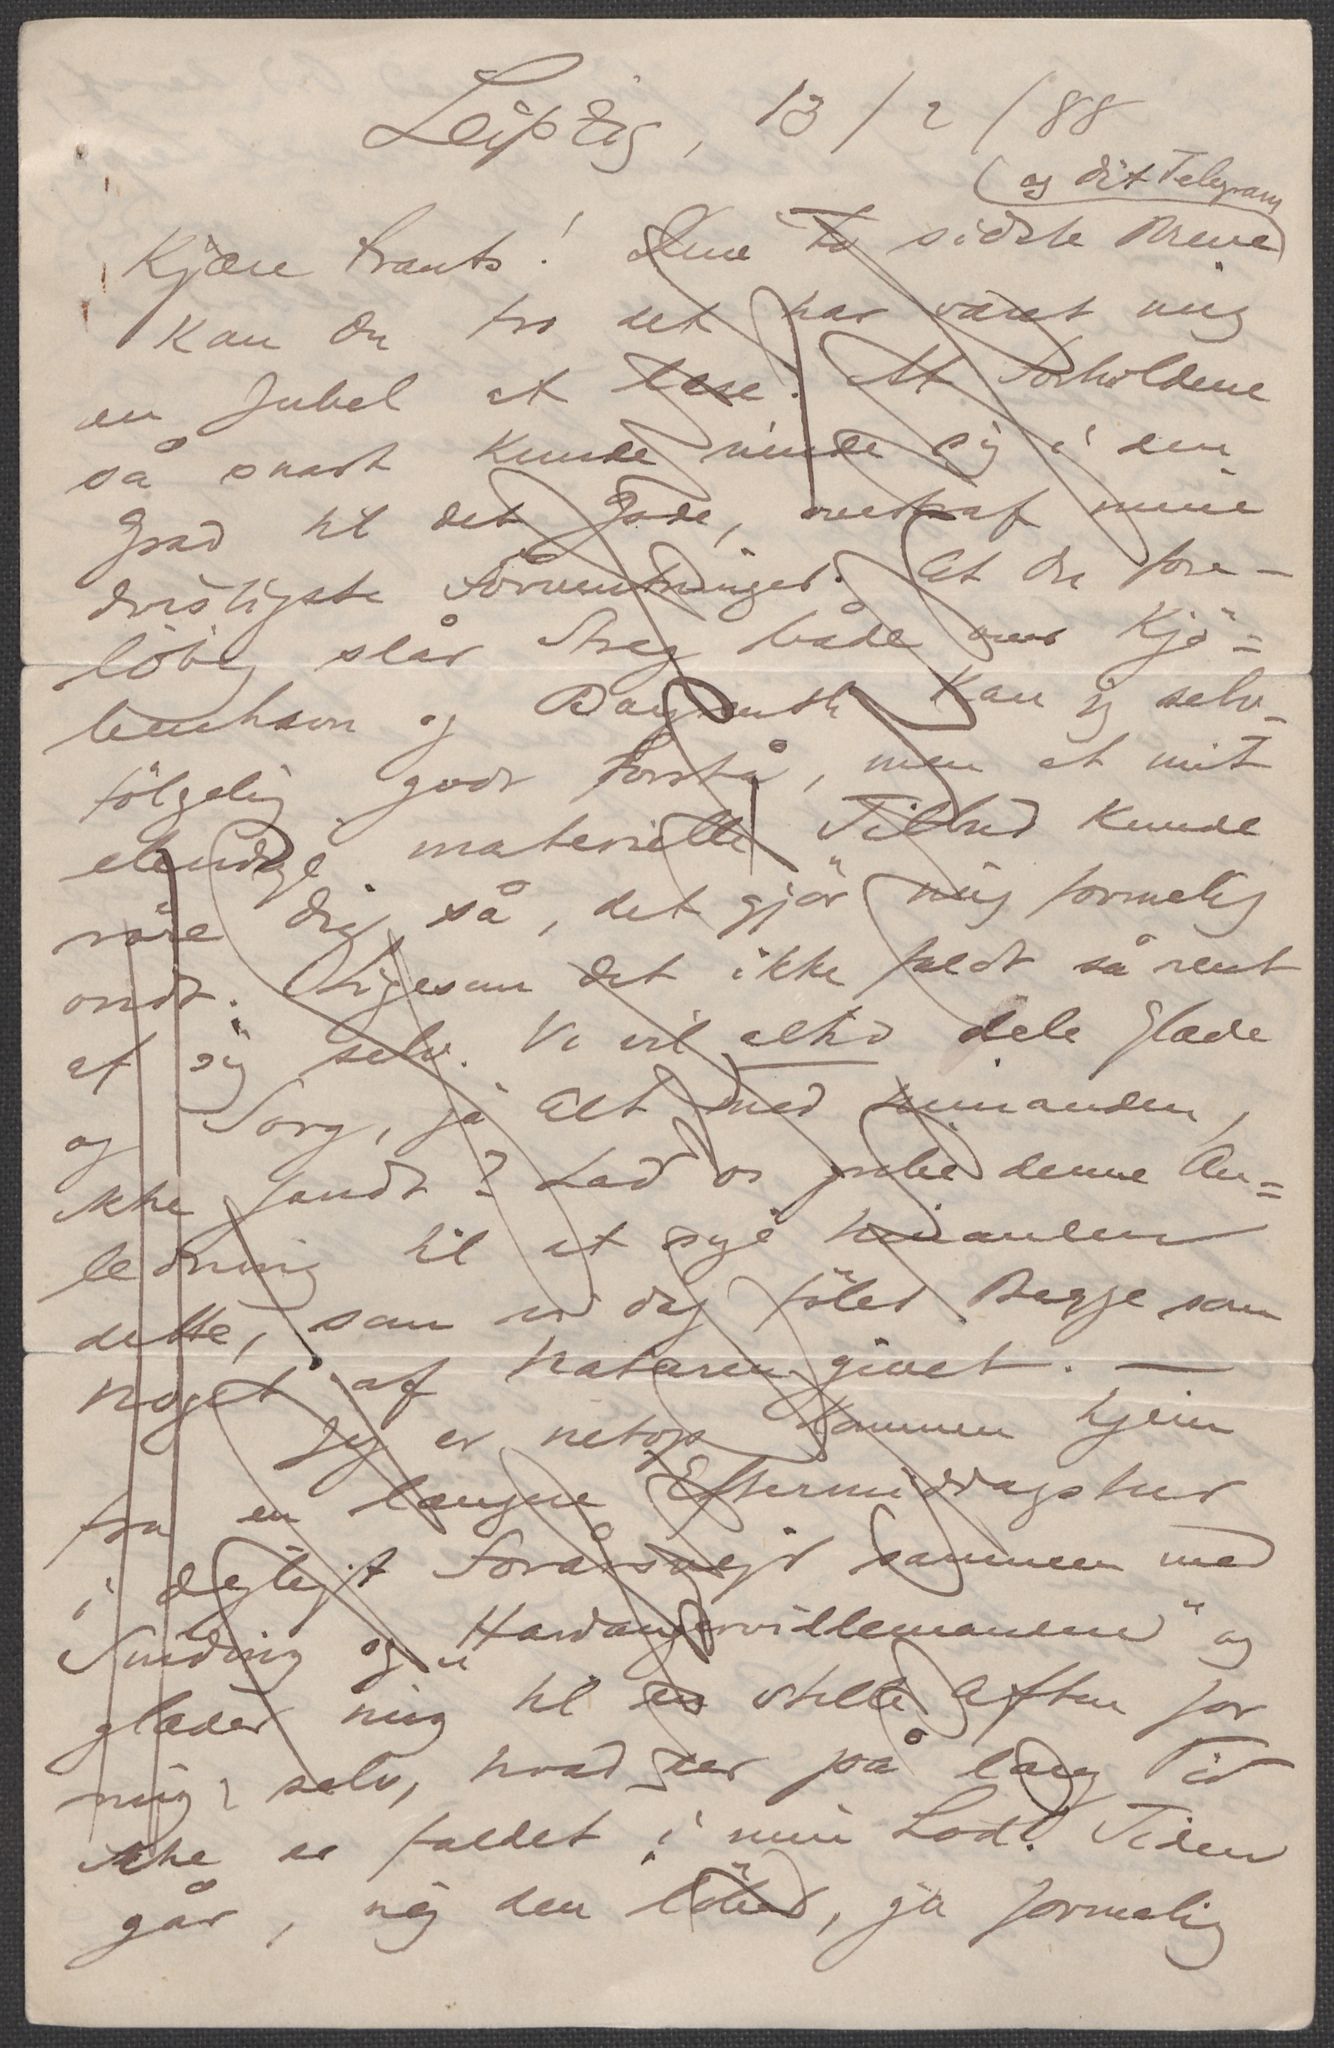 Leipzig, 13/2/88
(og dit Telegram)
Kjære Frants! Dine To sidste Breve
kan du tro det har været mig
en Jubel at læse. At Forholdene
så snart kunde vende sig i den
Grad til det Gode, oversteg mine
dristigste Forventninger. At du fore-
löbig slår Streg både over Kjö=
benhavn og Bayreuth kan jeg selv-
fölgelig godt forstå, men at mit
elendige materielle Tilbud kunde
röre dig så, det gjör mig formelig
ondt. Ligesom det ikke faldt så rent
af sig selv. Vi vil altid dele Glæde
og Sorg, ja Alt med hinanden,
ikke sandt? Lad os gribe denne An=
ledning til at sige hinanden
dette, som vi dog föler Begge som
noget af Naturen givet. —
Jeg er netop kommen hjem
fra en længere Eftermiddagstur
i dejligt Forårsvejr sammen med
Sinding og "Hardangervillemanden" og
glæder mig til en stille Aften for
mig selv, hvad der på lang Tid
ikke er faldet i min Lod. Tiden
går, nej den löber, ja formelig